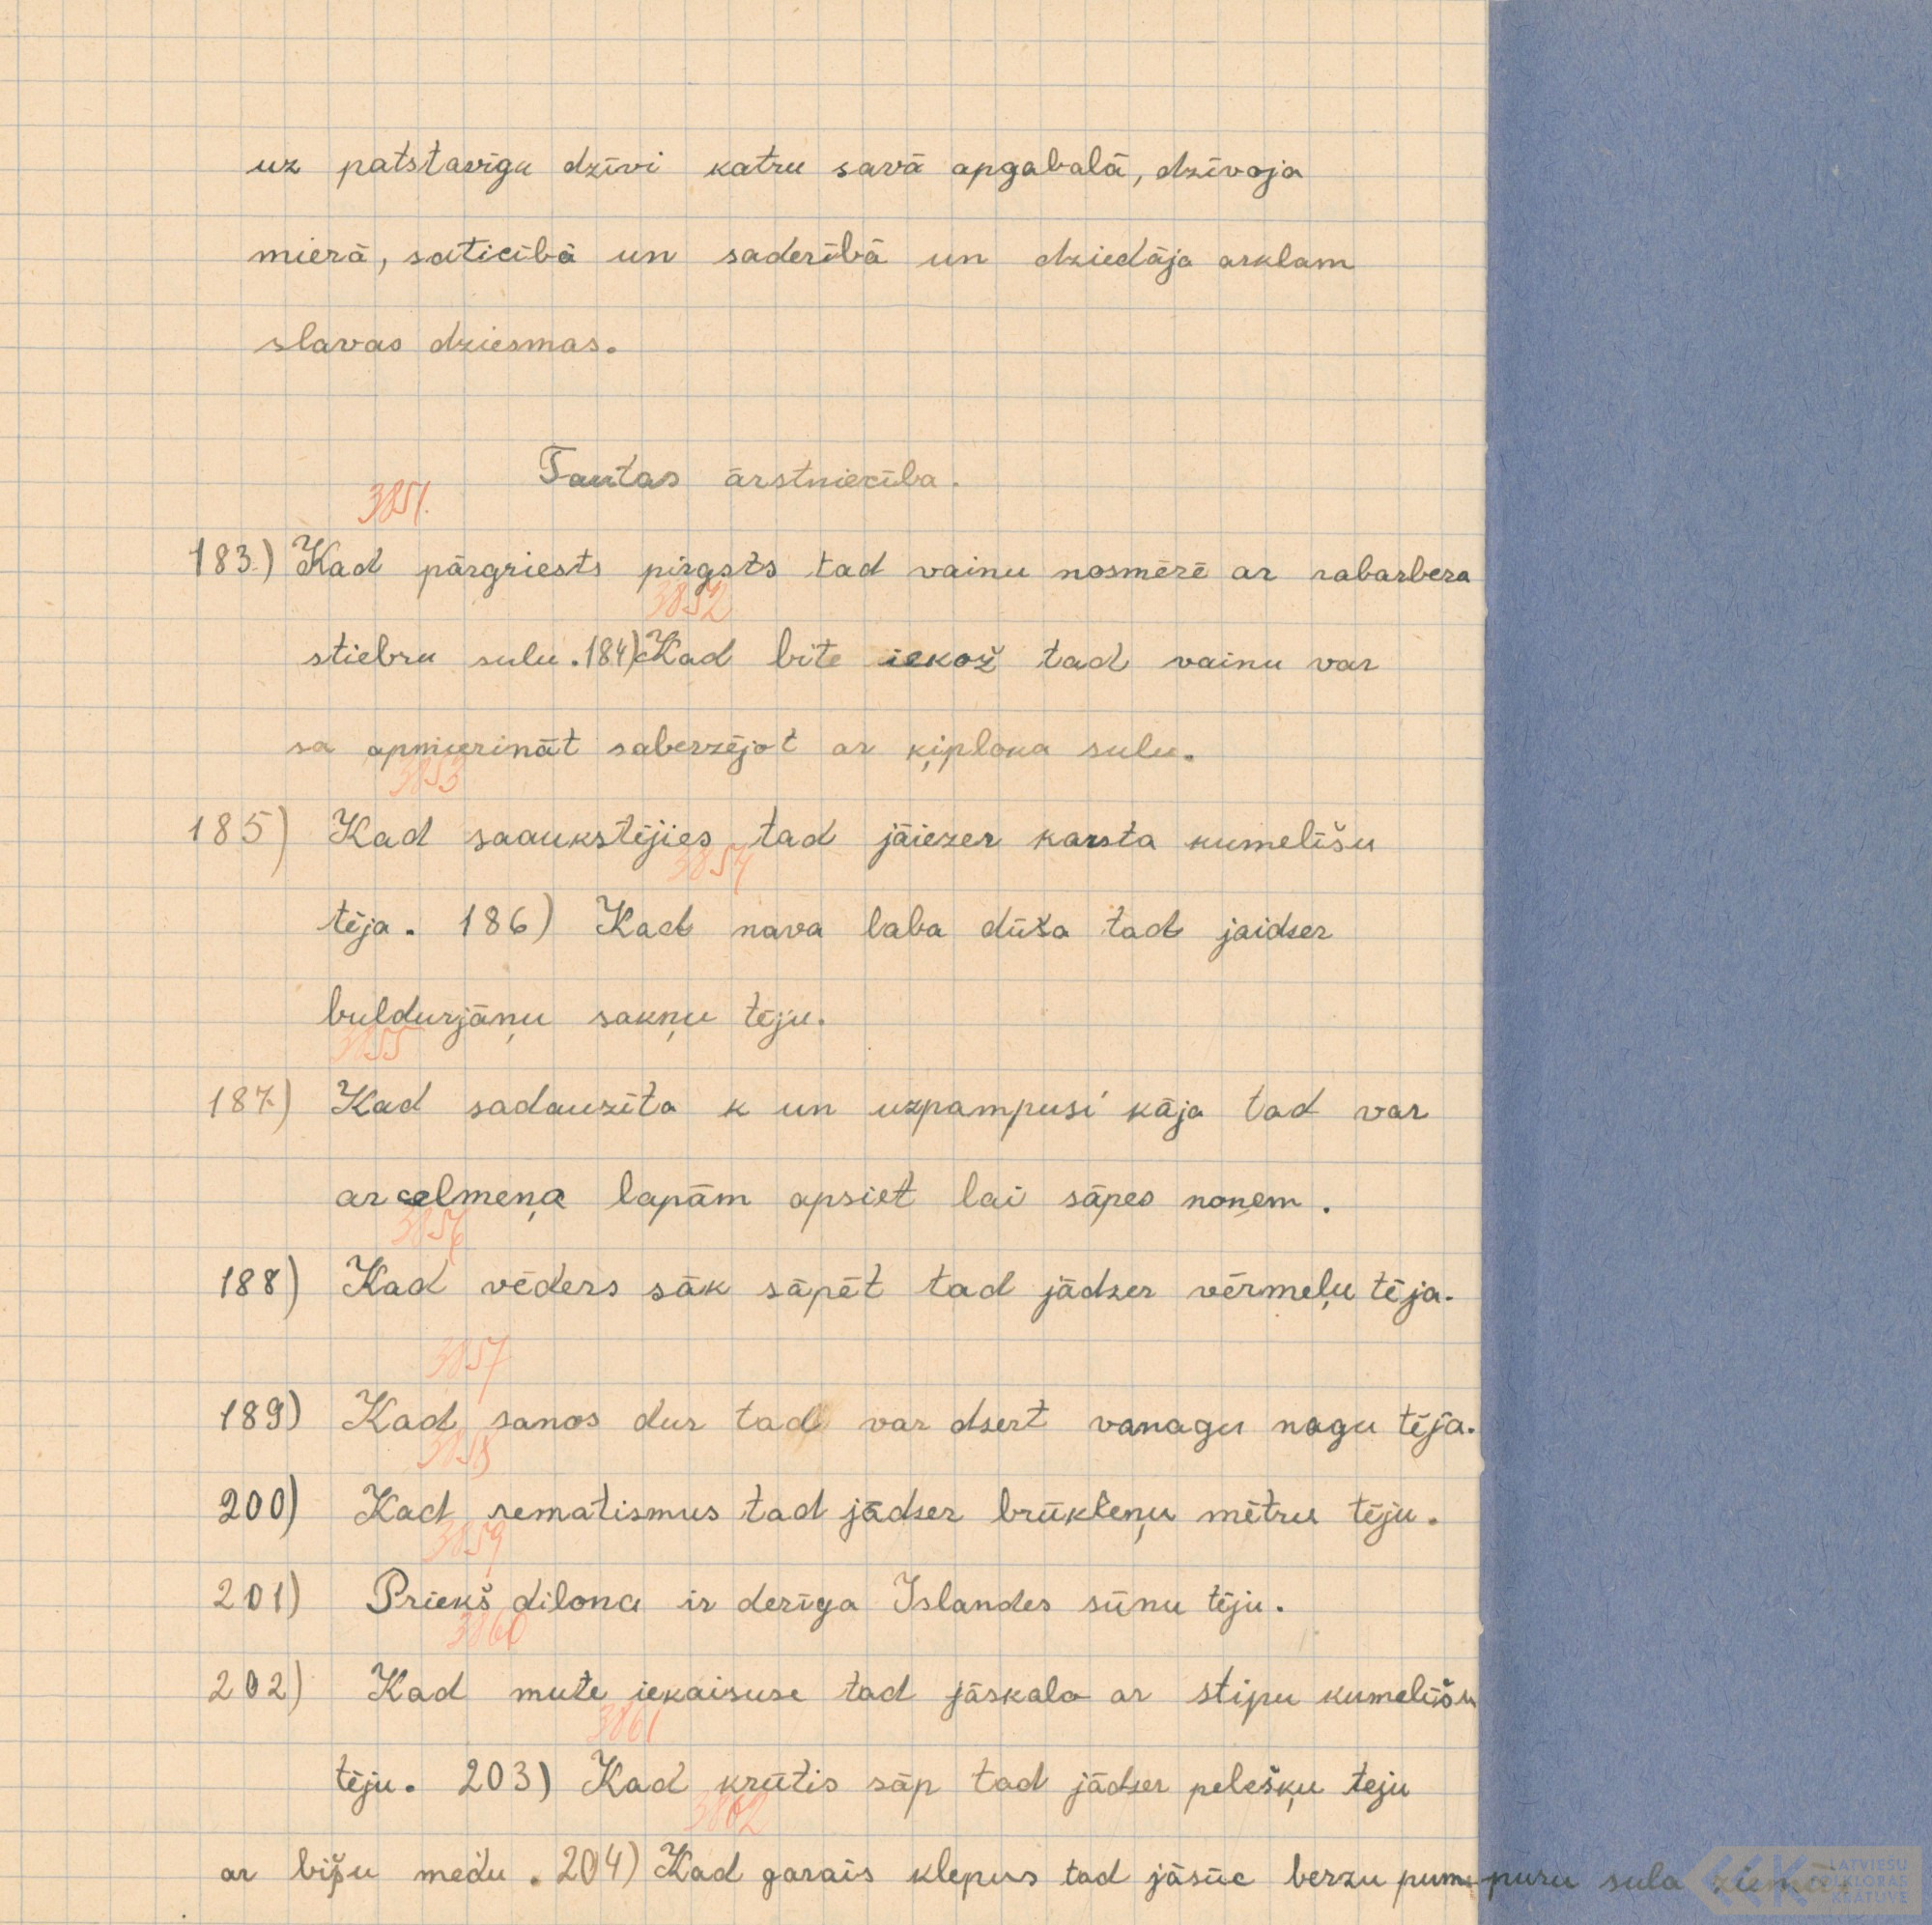 uz patstavīgu dzīvi katru savā apgabalā, dzīvoja
mierā, saticībā un saderībā un dziedāja arklam
slavas dziesmas.
Tautas ārstniecība.
3851.
183.) Kad pārgriests pirgsts tad vainu nosmērē ar rabarbera
3852
stiebru sulu. 184) Kad bite iekož tad vainu var
sa apmierināt saberzējot ar ķiploka sulu.
3853
185) Kad saaukstējies tad jāiezer karsta kumelīšu
3854
tēja. 186) Kad nava laba dūša tad jaidzer
buldurjāņu sakņu tēju.
3855
187.) Kad sadauzīta k un uzpampusi kāja tad var
ar celmeņa lapām apsiet lai sāpes noņem.
3856
188) Kad vēders sāk sāpēt tad jādzer vērmeļu tēja.
3857
189) Kad sanos dur tad var dzert vanagu nagu tēja.
3858
200) Kad rematismus tad jādzer brūkleņu mētru tēju.
3859
201) Priekš dilona ir derīga Islandes sūnu tēju.
3860
202) Kad mute iekaisuse tad jāskalo ar stipu kumelīšu
3861
tēju. 203) Kad krūtis sāp tad jādzer pelešķu teju
3862
ar bišu medu. 204) Kad garais klepus tad jāsūc berzu pumpuru sula ziemā.
LATVIEŠU
FOLKLORAS
KRĀTUVE